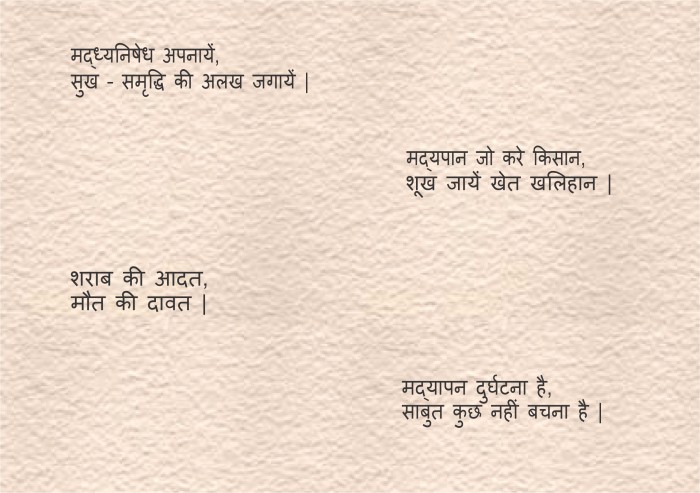 मद्ध्यनिषेध अपनायें,
सुख - समृद्धि की अलख जगायें |
मद्यपान जो करे किसान,
शूख जायें खेत खलिहान |
शराब की आदत,
मौत की दावत |
मद्यापन दुर्घटना है,
साबुत कुछ नहीं बचना है |